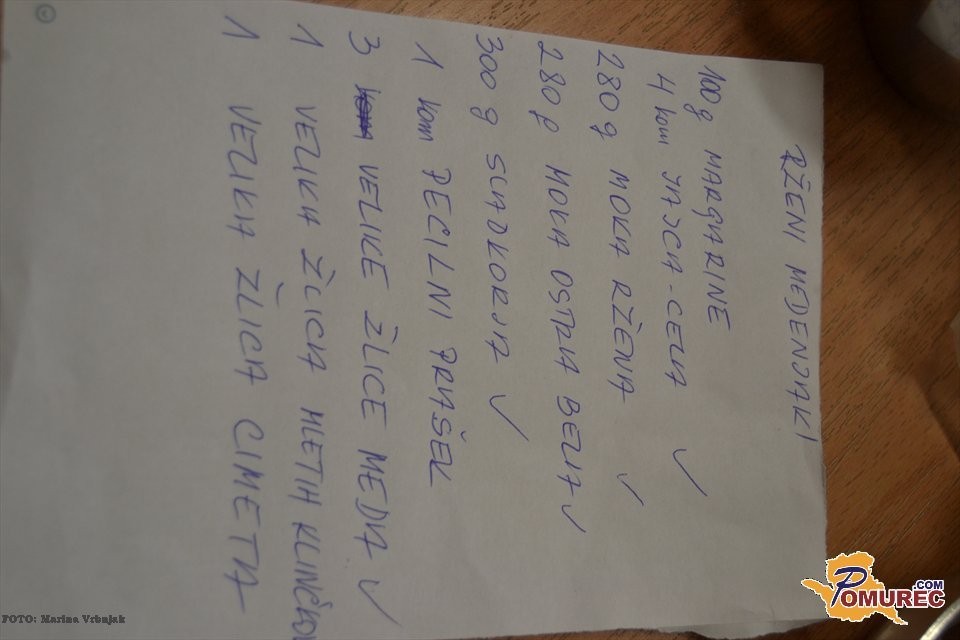 RŽENI MEDENJAKI
100g MARGARINE
4 kom JAJCA-CELA ✓
280g MOKA RŽENA ✓
280g MOKA OSTRA BELA ✓
300g SLADKORJA ✓
1 kom PECILNI PRAŠEK
3 VELIKE ŽLICE MEDA ✓
1 VELIKA ŽLICA MLETIH KLINČKOV
1 VELIKA ŽLICA CIMETA
POMUREC.COM
FOTO: Marina Vrbnjak